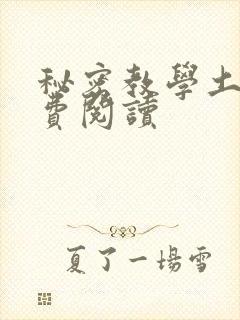 秘密教學土
費閱讀
夏了一場雪